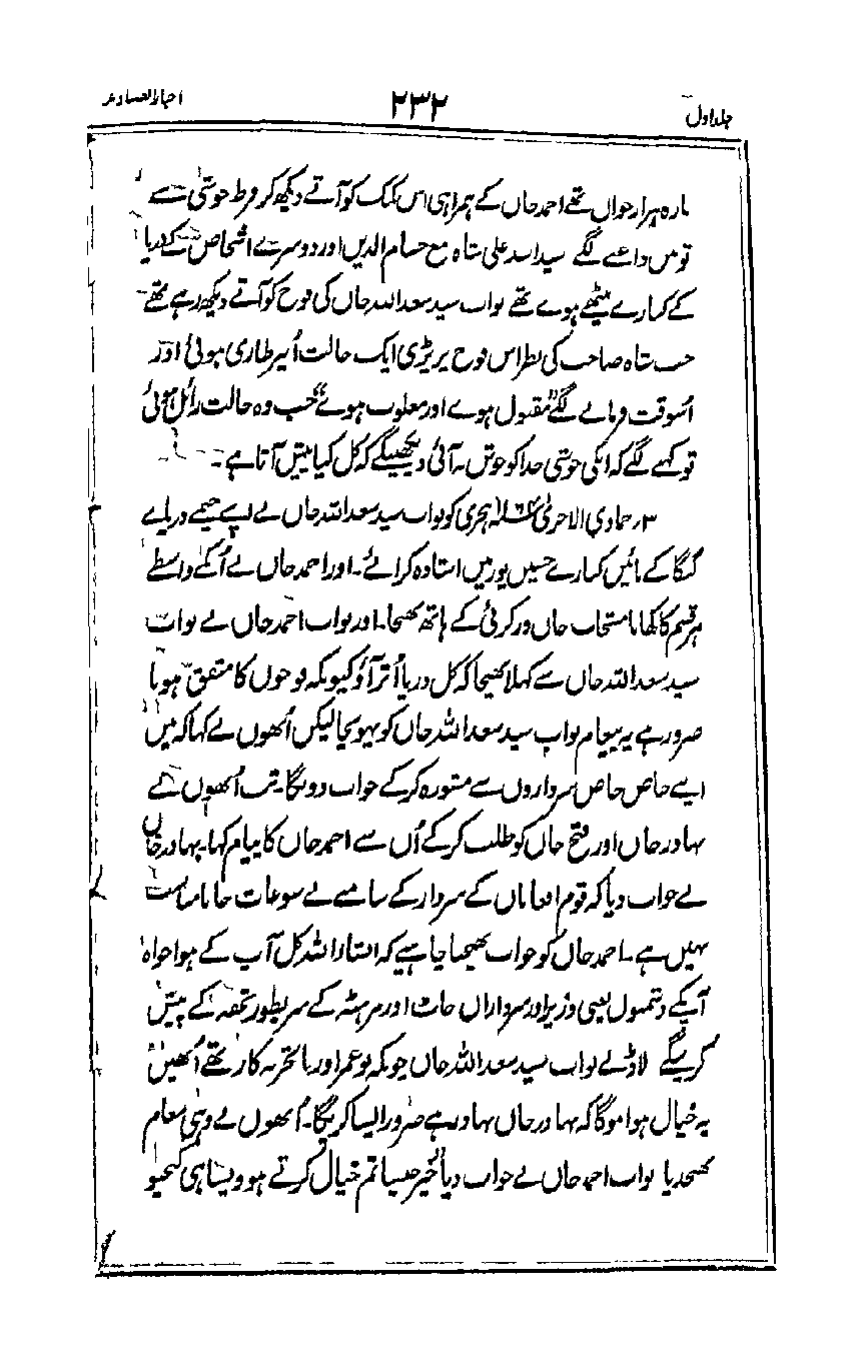 جلد اول
۲۳۲
اخبار الصنادید
بارہ ہزار جوان تھے احمد خاں کے ہمراہی اس کمک کو آتے دیکھ کر فرط خوشی سے
توپیں داغنے لگے سید اسد علی شاہ مع حسام الدین اور دوسرے اشخاص کے دریا
کے کنارے بیٹھے ہوے تھے نواب سید سعد اللہ خاں کی فوج کو آتے دیکھ رہے تھے
جب شاہ صاحب کی نظر اس فوج پر پڑی ایک حالت اُنپر طاری ہوئی اور
اُسوقت فرمانے لگے مقبول ہوے اور مغلوب ہوے جب وہ حالت زائل ہوئی
تو کہنے لگے کہ انکی خوشی خدا کو خوش نہ آئی دیکھیے کہ کل کیا پیش آتا ہے۔
۳؍ جمادی الاخریٰ ہجری کو نواب سید سعد اللہ خاں نے اپنے خیمے دریاے
گنگا کے بائیں کنارے حسین پور میں استادہ کرائے۔ اور احمد خاں نے اُنکے واسطے
ہر قسم کا کھانا منتخاب خاں ورکزئی کے ہاتھ بھیجا۔ اور نواب احمد خاں نے نواب
سید سعد اللہ خاں سے کہلا بھیجا کہ کل دریا اُتر آؤ کیونکہ فوجوں کا متفق ہونا
ضرور ہے یہ پیغام نواب سید سعد اللہ خاں کو پہونچا لیکن اُنھوں نے کہا کہ میں
اپنے خاص خاص سرداروں سے مشورہ کرکے جواب دونگا۔ تب اُنھوں نے
بہادر خاں اور فتح خاں کو طلب کرکے اُن سے احمد خاں کا پیام کہا۔ بہادر خاں
نے جواب دیا کہ قوم افغاناں کے سردار کے سامنے بے سوغات جانا مناسب
نہیں ہے۔ احمد خاں کو جواب بھیجنا چاہیے کہ انشاء اللہ کل آپ کے ہوا خواہ
آپکے دشمنوں یعنی وزیر اور سرداران جاٹ اور مرہٹہ کے سر بطور تحفہ کے پیش
کرینگے لاڈلے نواب سید سعد اللہ خاں چونکہ نو عمر اور ناتجربہ کار تھے اُنھیں
یہ خیال ہوا ہوگا کہ بہادر خاں بہادر ہے ضرور ایسا کریگا۔ اُنھوں نے وہی پیغام
بھیجدیا نواب احمد خاں نے جواب دیا خیر جیسا تم خیال کرتے ہو ویسا ہی کیجیو